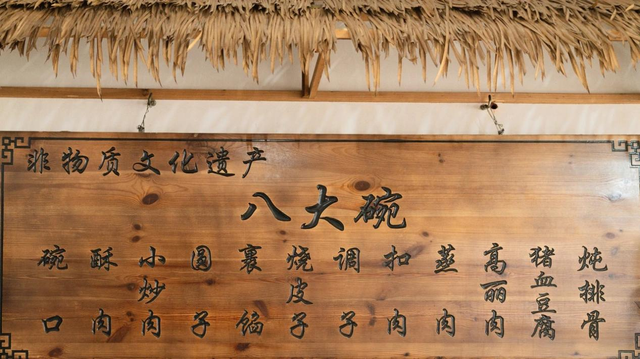 非物质文化遗产
八大碗
碗口
酥肉
小炒肉
圆子
裹馅
烧皮子
调子
扣肉
蒸肉
高丽肉
猪血豆腐
炖排骨